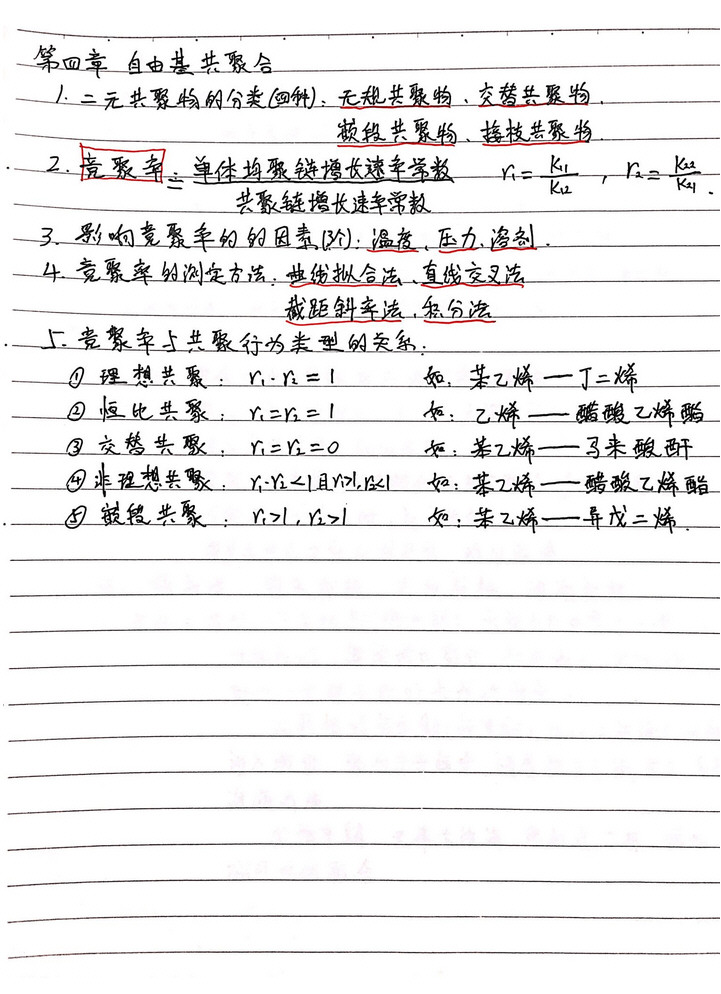 第四章 自由基共聚合
1. 二元共聚物的分类(四种): 无规共聚物、交替共聚物、
嵌段共聚物、接枝共聚物.
2. 竞聚率: = 单体均聚链增长速率常数 / 共聚链增长速率常数 r₁ = K₁₁/K₁₂ , r₂ = K₂₂/K₂₁ .
3. 影响竞聚率的的因素(3个): 温度、压力、溶剂.
4. 竞聚率的测定方法: 曲线拟合法、直线交叉法
截距斜率法、积分法
5. 竞聚率与共聚行为类型的关系:
① 理想共聚: r₁·r₂=1 如: 苯乙烯——丁二烯
② 恒比共聚: r₁=r₂=1 如: 乙烯——醋酸乙烯酯
③ 交替共聚: r₁=r₂=0 如: 苯乙烯——马来酸酐
④ 非理想共聚: r₁·r₂<1且r₁>1,r₂<1 如: 苯乙烯——醋酸乙烯酯
⑤ 嵌段共聚: r₁>1, r₂>1 如: 苯乙烯——异戊二烯.